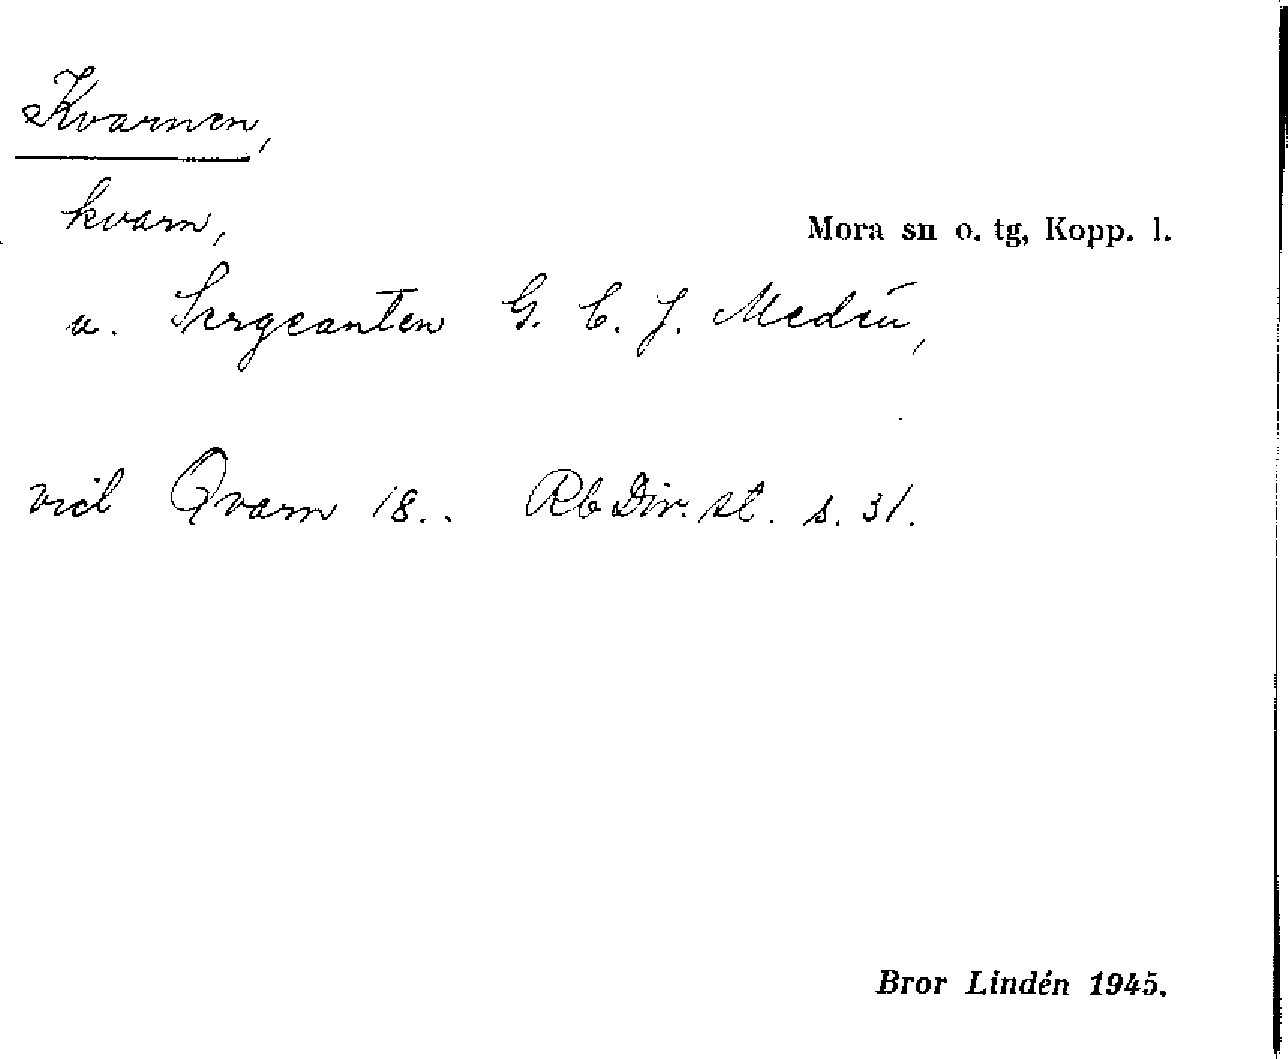 Kvarnen,
kvarn,
Mora sn o. tg, Kopp. l.
u. Sergeanten G. C. J. Medén,
vid Qvarn 18.. RbDir. st. s. 31.
Bror Lindén 1945.